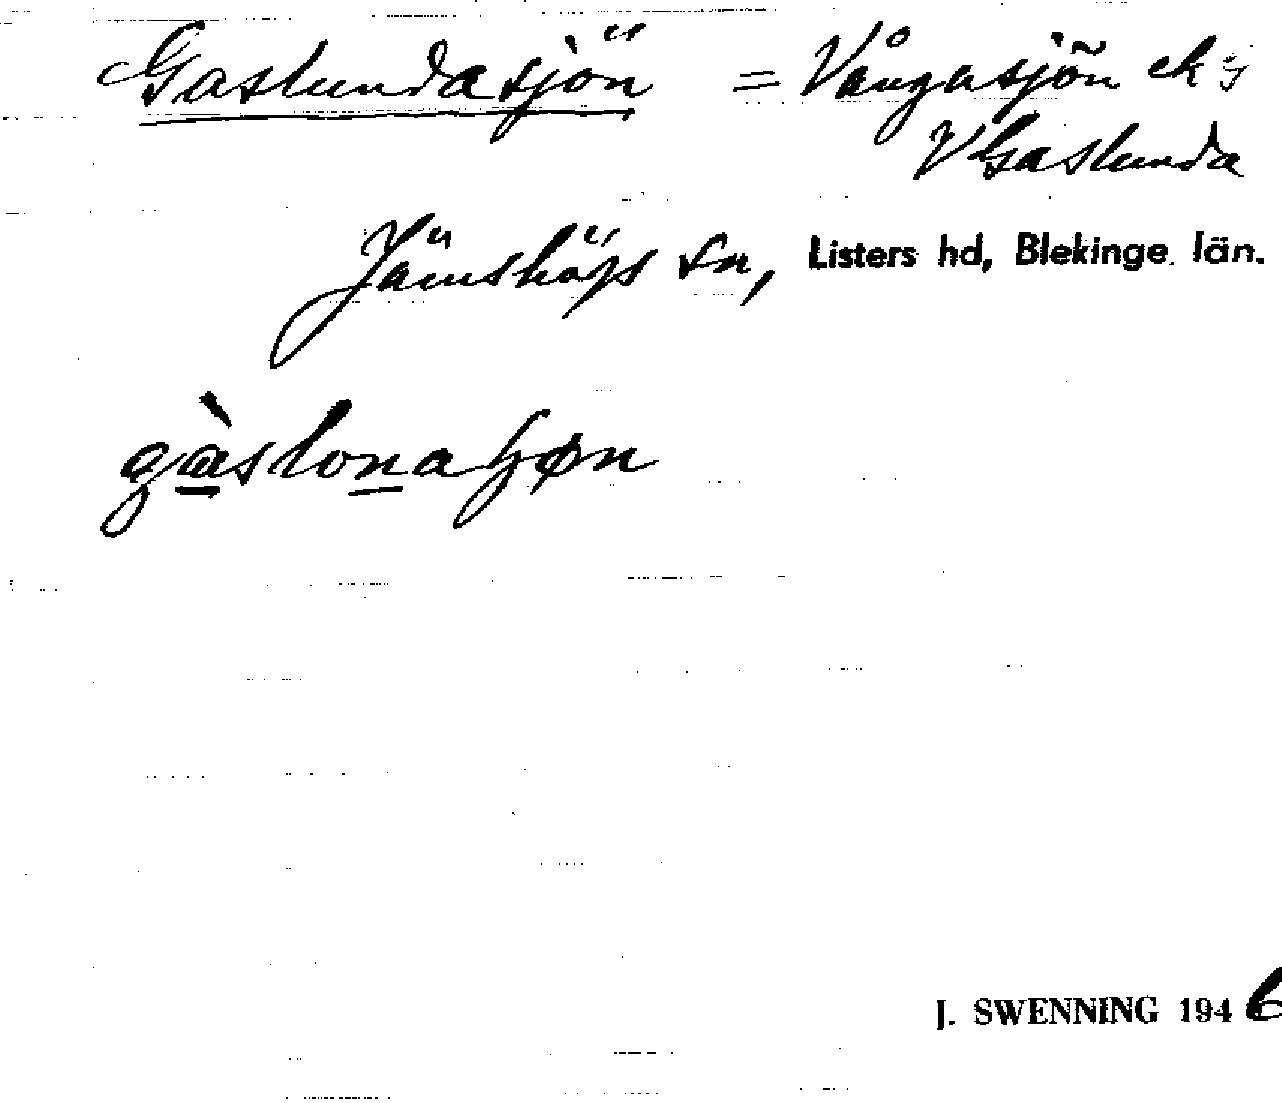 Gaslundasjön = Vångasjön ek ;
V Gaslunda
Jämshögs sn, Listers hd, Blekinge län.
gàslona
J. SWENNING 1946